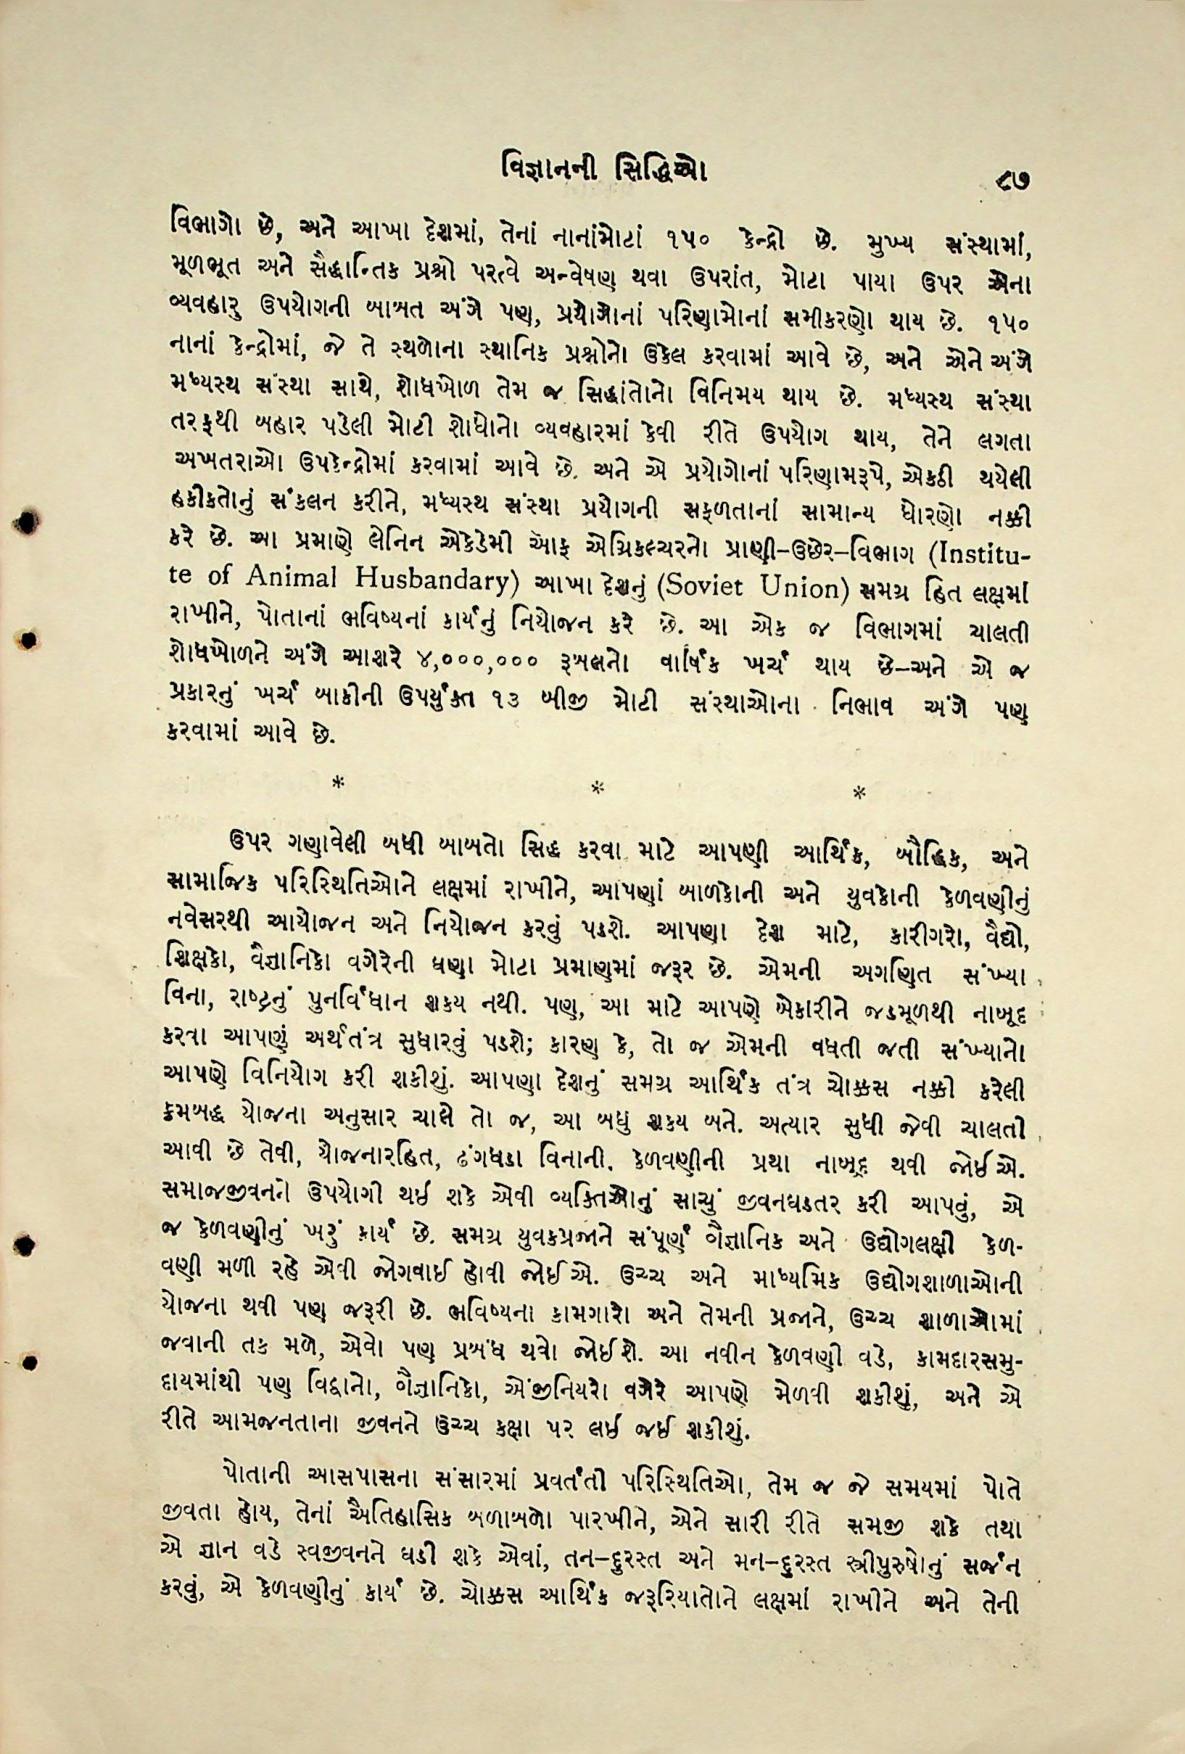 વિજ્ઞાનની સિદ્ધિઓ
૮૭
વિભાગો છે, અને આખા દેશમાં, તેનાં નાનાંમોટાં ૧૫૦ કેન્દ્રો છે. મુખ્ય સંસ્થામાં,
મૂળભૂત અને સૈદ્ધાન્તિક પ્રશ્નો પરત્વે અન્વેષણ થવા ઉપરાંત, મોટા પાયા ઉપર એના
વ્યવહારુ ઉપયોગની બાબત અંગે પણ, પ્રયોગોનાં પરિણામોનાં સમીકરણો થાય છે. ૧૫૦
નાનાં કેન્દ્રોમાં, જે તે સ્થળોના સ્થાનિક પ્રશ્નોનો ઉકેલ કરવામાં આવે છે, અને એને અંગે
મધ્યસ્થ સંસ્થા સાથે, શોધખોળ તેમ જ સિદ્ધાંતોનો વિનિમય થાય છે. મધ્યસ્થ સંસ્થા
તરફથી બહાર પડેલી મોટી શોધોનો વ્યવહારમાં કેવી રીતે ઉપયોગ થાય, તેને લગતા
અખતરાઓ ઉપકેન્દ્રોમાં કરવામાં આવે છે. અને એ પ્રયોગોનાં પરિણામરૂપે, એકઠી થયેલી
હકીકતોનું સંકલન કરીને, મધ્યસ્થ સંસ્થા પ્રયોગની સફળતાનાં સામાન્ય ધોરણો નક્કી
કરે છે. આ પ્રમાણે લેનિન એકેડેમી ઑફ એગ્રિકલ્ચરનો પ્રાણી-ઉછેર-વિભાગ (Institu-
te of Animal Husbandary) આખા દેશનું (Soviet Union) સમગ્ર હિત લક્ષમાં
રાખીને, પોતાનાં ભવિષ્યનાં કાર્યનું નિયોજન કરે છે. આ એક જ વિભાગમાં ચાલતી
શોધખોળને અંગે આશરે ૪,૦૦૦,૦૦૦ રૂબલનો વાર્ષિક ખર્ચ થાય છે–અને એ જ
પ્રકારનું ખર્ચ બાકીની ઉપર્યુક્ત ૧૩ બીજી મોટી સંસ્થાઓના નિભાવ અંગે પણ
કરવામાં આવે છે.
* * *
ઉપર ગણાવેલી બધી બાબતો સિદ્ધ કરવા માટે આપણી આર્થિક, બૌદ્ધિક, અને
સામાજિક પરિસ્થિતિઓને લક્ષમાં રાખીને, આપણાં બાળકોની અને યુવકોની કેળવણીનું
નવેસરથી આયોજન અને નિયોજન કરવું પડશે. આપણા દેશ માટે, કારીગરો, વૈદ્યો,
શિક્ષકો, વૈજ્ઞાનિકો વગેરેની ઘણા મોટા પ્રમાણમાં જરૂર છે. એમની અગણિત સંખ્યા
વિના, રાષ્ટ્રનું પુનર્વિધાન શક્ય નથી. પણ, આ માટે આપણે બેકારીને જડમૂળથી નાબૂદ
કરવા આપણું અર્થતંત્ર સુધારવું પડશે; કારણ કે, તો જ એમની વધતી જતી સંખ્યાનો
આપણે વિનિયોગ કરી શકીશું. આપણા દેશનું સમગ્ર આર્થિક તંત્ર ચોક્કસ નક્કી કરેલી
ક્રમબદ્ધ યોજના અનુસાર ચાલે તો જ, આ બધું શક્ય બને. અત્યાર સુધી જેવી ચાલતી
આવી છે તેવી, યોજનારહિત, ઢંગધડા વિનાની, કેળવણીની પ્રથા નાબૂદ થવી જોઈએ.
સમાજજીવનને ઉપયોગી થઈ શકે એવી વ્યક્તિઓનું સાચું જીવનઘડતર કરી આપવું, એ
જ કેળવણીનું ખરું કાર્ય છે. સમગ્ર યુવકપ્રજાને સંપૂર્ણ વૈજ્ઞાનિક અને ઉદ્યોગલક્ષી કેળ-
વણી મળી રહે એવી જોગવાઈ હોવી જોઈએ. ઉચ્ચ અને માધ્યમિક ઉદ્યોગશાળાઓની
યોજના થવી પણ જરૂરી છે. ભવિષ્યના કામગારો અને તેમની પ્રજાને, ઉચ્ચ શાળાઓમાં
જવાની તક મળે, એવો પણ પ્રબંધ થવો જોઈશે. આ નવીન કેળવણી વડે, કામદારસમુ-
દાયમાંથી પણ વિદ્વાનો, વૈજ્ઞાનિકો, એંજીનિયરો વગેરે આપણે મેળવી શકીશું, અને એ
રીતે આમજનતાના જીવનને ઉચ્ચ કક્ષા પર લઈ જઈ શકીશું.
પોતાની આસપાસના સંસારમાં પ્રવર્તતી પરિસ્થિતિઓ, તેમ જ જે સમયમાં પોતે
જીવતા હોય, તેનાં ઐતિહાસિક બળાબળો પારખીને, એને સારી રીતે સમજી શકે તથા
એ જ્ઞાન વડે સ્વજીવનને ઘડી શકે એવાં, તન-દુરસ્ત અને મન-દુરસ્ત સ્ત્રીપુરુષોનું સર્જન
કરવું, એ કેળવણીનું કાર્ય છે. ચોક્કસ આર્થિક જરૂરિયાતોને લક્ષમાં રાખીને અને તેની